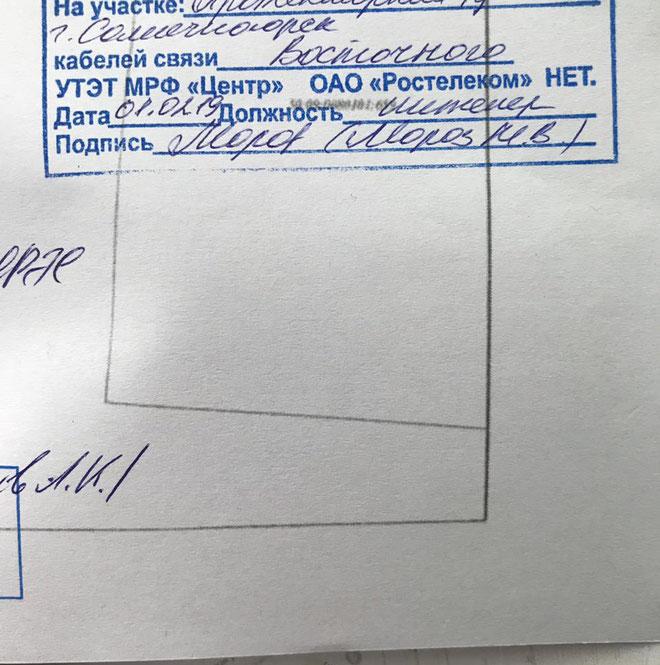 На участке:
г. Солнечногорск
кабелей связи Восточного
УТЭТ МРФ «Центр» ОАО «Ростелеком» НЕТ.
Дата 01.02.19 Должность инженер
Подпись Мороз (Мороз М.В.)
А.К./